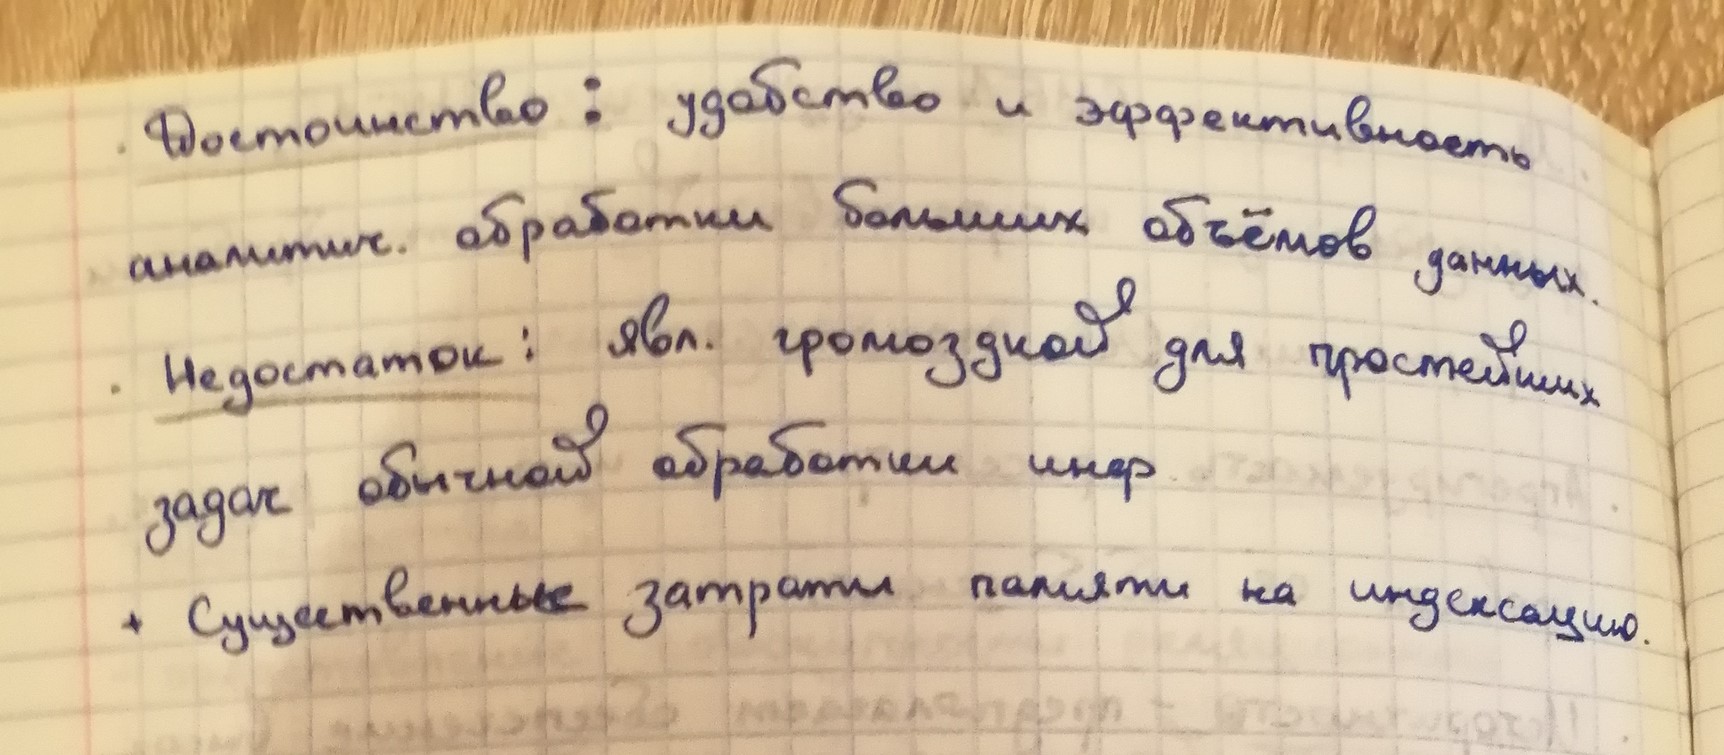 · Достоинство: удобство и эффективность
аналитич. обработки больших объёмов данных.
· Недостаток: явл. громоздкой для простейших
задач обычной обработки инф.
+ Существенные затраты памяти на индексацию.